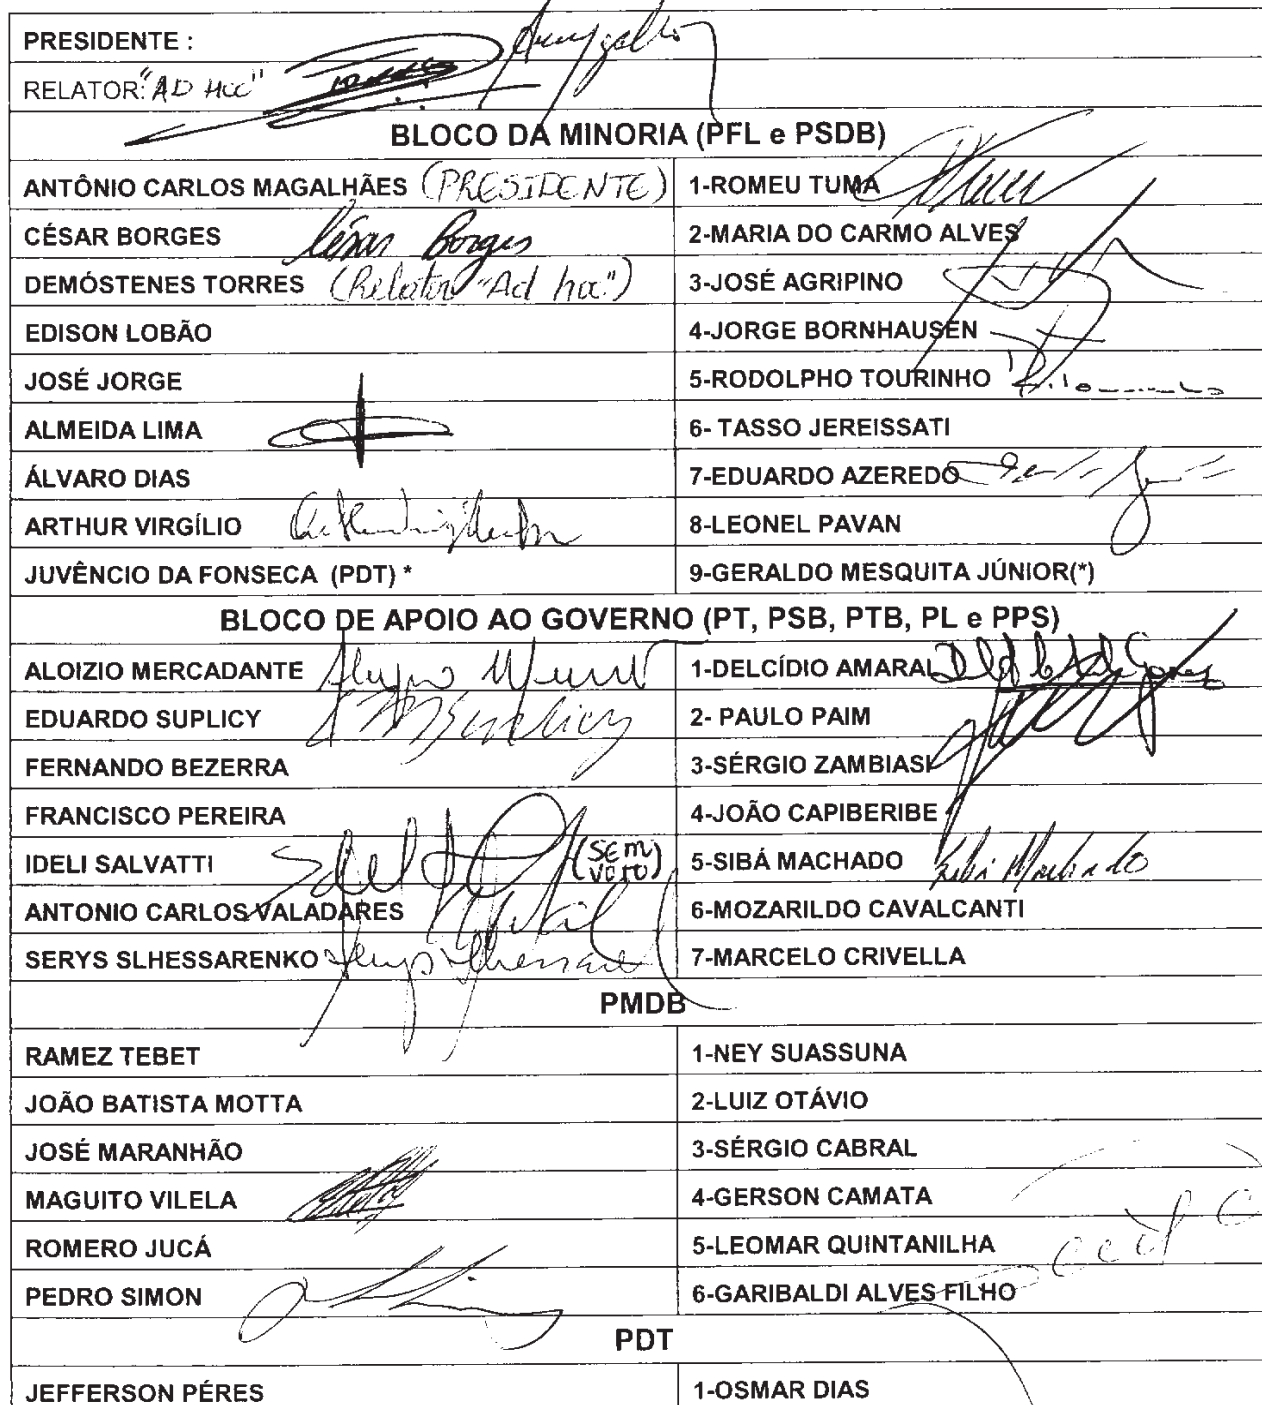 PRESIDENTE :
RELATOR: "AD HOC"
BLOCO DA MINORIA (PFL e PSDB)
ANTÔNIO CARLOS MAGALHÃES (PRESIDENTE) 1-ROMEU TUMA
CÉSAR BORGES César Borges 2-MARIA DO CARMO ALVES
DEMÓSTENES TORRES (Relator "Ad hoc") 3-JOSÉ AGRIPINO
EDISON LOBÃO 4-JORGE BORNHAUSEN
JOSÉ JORGE 5-RODOLPHO TOURINHO
ALMEIDA LIMA 6- TASSO JEREISSATI
ÁLVARO DIAS 7-EDUARDO AZEREDO
ARTHUR VIRGÍLIO 8-LEONEL PAVAN
JUVÊNCIO DA FONSECA (PDT) * 9-GERALDO MESQUITA JÚNIOR(*)
BLOCO DE APOIO AO GOVERNO (PT, PSB, PTB, PL e PPS)
ALOIZIO MERCADANTE 1-DELCÍDIO AMARAL
EDUARDO SUPLICY Suplicy 2- PAULO PAIM
FERNANDO BEZERRA 3-SÉRGIO ZAMBIASI
FRANCISCO PEREIRA 4-JOÃO CAPIBERIBE
IDELI SALVATTI (SEM VOTO) 5-SIBÁ MACHADO Sibá Machado
ANTONIO CARLOS VALADARES 6-MOZARILDO CAVALCANTI
SERYS SLHESSARENKO 7-MARCELO CRIVELLA
PMDB
RAMEZ TEBET 1-NEY SUASSUNA
JOÃO BATISTA MOTTA 2-LUIZ OTÁVIO
JOSÉ MARANHÃO 3-SÉRGIO CABRAL
MAGUITO VILELA 4-GERSON CAMATA
ROMERO JUCÁ 5-LEOMAR QUINTANILHA
PEDRO SIMON 6-GARIBALDI ALVES FILHO
PDT
JEFFERSON PÉRES 1-OSMAR DIAS